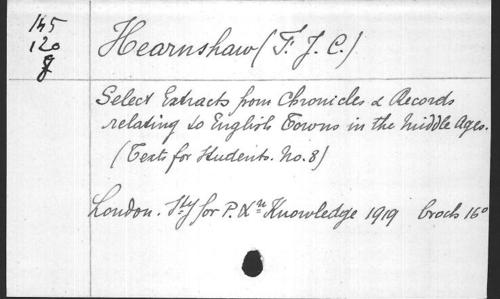 145
120
g
Hearnshaw (F. J. C.)
Select Extracts from Chronicles & Records
relating to English Towns in the Middle Ages.
(Texts for Students. No. 8)
London. Sty for P. Xn Knowledge 1919 broch 16°